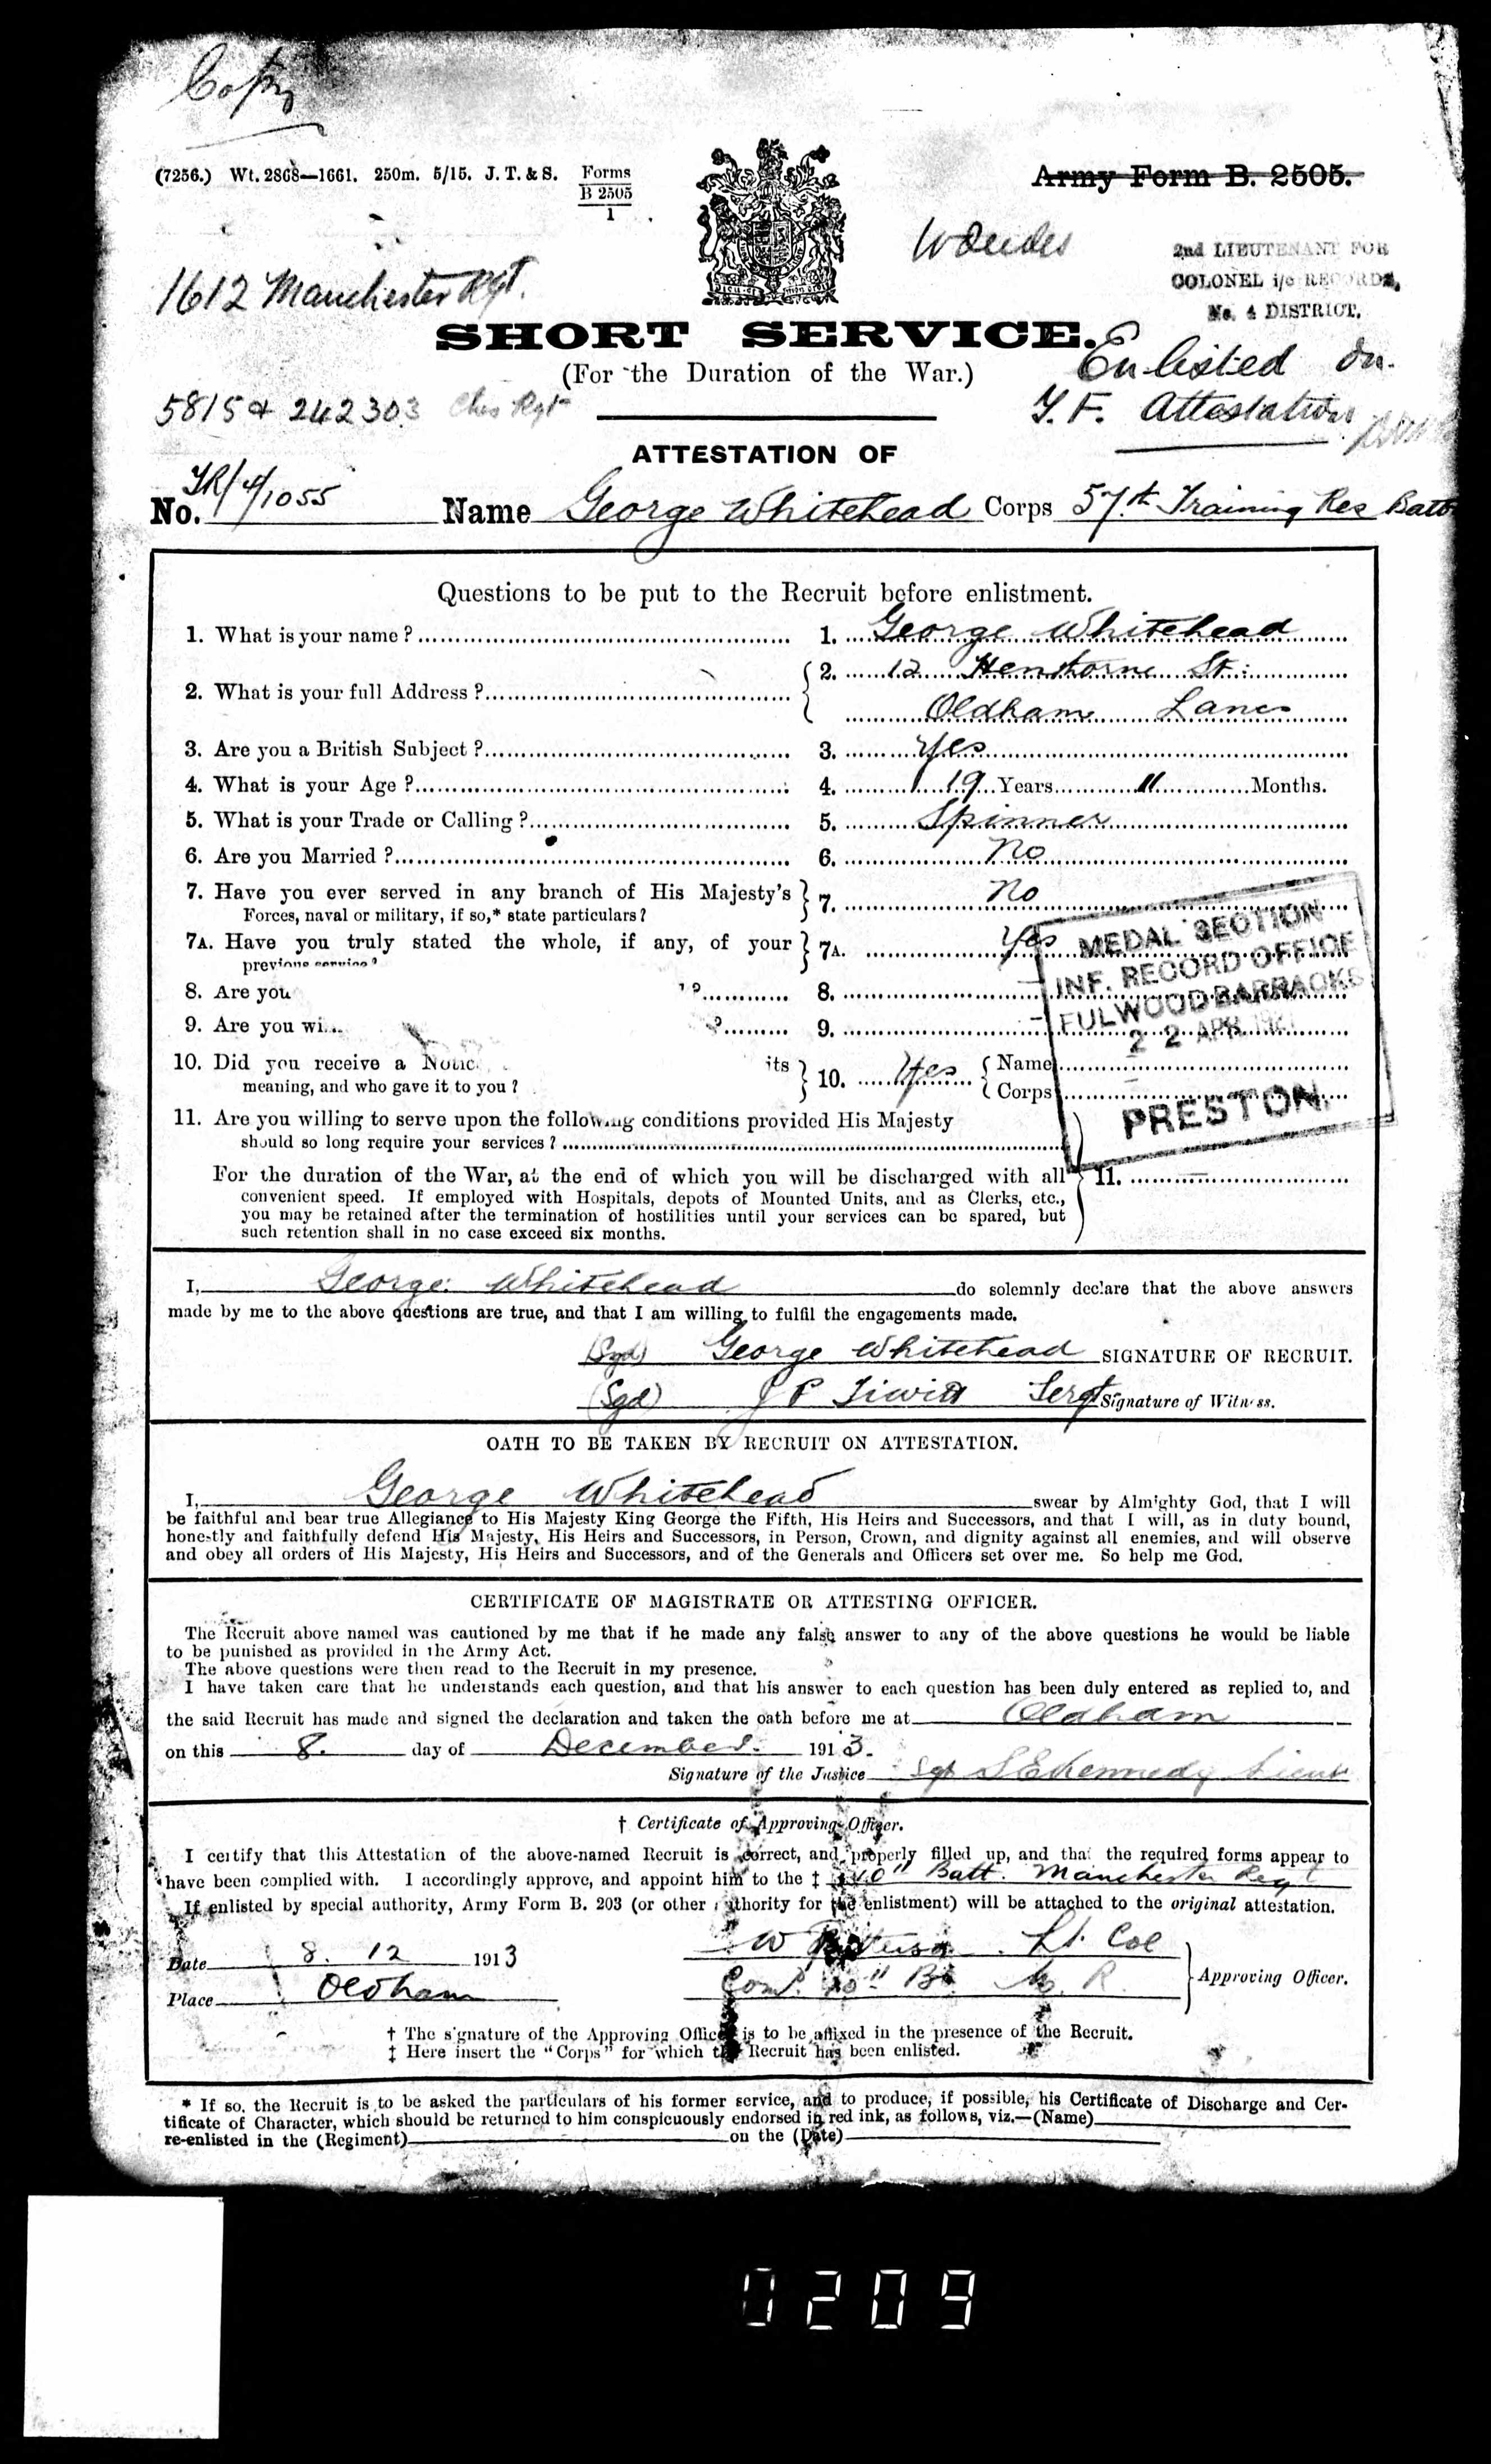 Copy
(7256.) Wt. 2868—1661. 250m. 5/15. J. T. & S. Forms B 2505 1
Army Form B. 2505.
2nd LIEUTENANT FOR
COLONEL i/c RECORDS,
No. 4 DISTRICT.
1612 Manchester Rgt.
SHORT SERVICE.
(For the Duration of the War.)
Enlisted on
T.F. Attestation
5815 & 242303 Ches Rgt
ATTESTATION OF
No. TR/4/1055 Name George Whitehead Corps 57th Training Res Batt
Questions to be put to the Recruit before enlistment.
1. What is your name? 1. George Whitehead
2. What is your full Address? 2. 12 Henshorne St:
Oldham Lancs
3. Are you a British Subject? 3. Yes
4. What is your Age? 4. 19 Years 11 Months.
5. What is your Trade or Calling? 5. Spinner
6. Are you Married? 6. No
7. Have you ever served in any branch of His Majesty's 7. No
Forces, naval or military, if so,* state particulars?
7A. Have you truly stated the whole, if any, of your 7A. Yes
previous service?
8. Are you ? 8.
9. Are you wi ? 9.
10. Did you receive a Notic its 10. Yes { Name
meaning, and who gave it to you? { Corps
MEDAL SECTION
INF. RECORD OFFICE
FULWOOD BARRACKS
22 APR 1921
PRESTON.
11. Are you willing to serve upon the following conditions provided His Majesty
should so long require your services?
For the duration of the War, at the end of which you will be discharged with all 11. —
convenient speed. If employed with Hospitals, depots of Mounted Units, and as Clerks, etc.,
you may be retained after the termination of hostilities until your services can be spared, but
such retention shall in no case exceed six months.
I, George Whitehead do solemnly declare that the above answers
made by me to the above questions are true, and that I am willing to fulfil the engagements made.
(Sgd) George Whitehead SIGNATURE OF RECRUIT.
(Sgd) J P Sergt Signature of Witness.
OATH TO BE TAKEN BY RECRUIT ON ATTESTATION.
I, George Whitehead swear by Almighty God, that I will
be faithful and bear true Allegiance to His Majesty King George the Fifth, His Heirs and Successors, and that I will, as in duty bound,
honestly and faithfully defend His Majesty, His Heirs and Successors, in Person, Crown, and dignity against all enemies, and will observe
and obey all orders of His Majesty, His Heirs and Successors, and of the Generals and Officers set over me. So help me God.
CERTIFICATE OF MAGISTRATE OR ATTESTING OFFICER.
The Recruit above named was cautioned by me that if he made any false answer to any of the above questions he would be liable
to be punished as provided in the Army Act.
The above questions were then read to the Recruit in my presence.
I have taken care that he understands each question, and that his answer to each question has been duly entered as replied to, and
the said Recruit has made and signed the declaration and taken the oath before me at Oldham
on this 8. day of December 1913.
Signature of the Justice Sgd S E Kennedy Lieut
† Certificate of Approving Officer.
I certify that this Attestation of the above-named Recruit is correct, and properly filled up, and that the required forms appear to
have been complied with. I accordingly approve, and appoint him to the ‡ 10" Batt. Manchester Regt
If enlisted by special authority, Army Form B. 203 (or other authority for the enlistment) will be attached to the original attestation.
Date 8. 12 1913 W Lt. Col
Place Oldham Comd. 10" Bt M. R. Approving Officer.
† The signature of the Approving Officer is to be affixed in the presence of the Recruit.
‡ Here insert the "Corps" for which the Recruit has been enlisted.
* If so, the Recruit is to be asked the particulars of his former service, and to produce, if possible, his Certificate of Discharge and Cer-
tificate of Character, which should be returned to him conspicuously endorsed in red ink, as follows, viz.—(Name)
re-enlisted in the (Regiment) on the (Date)
0209